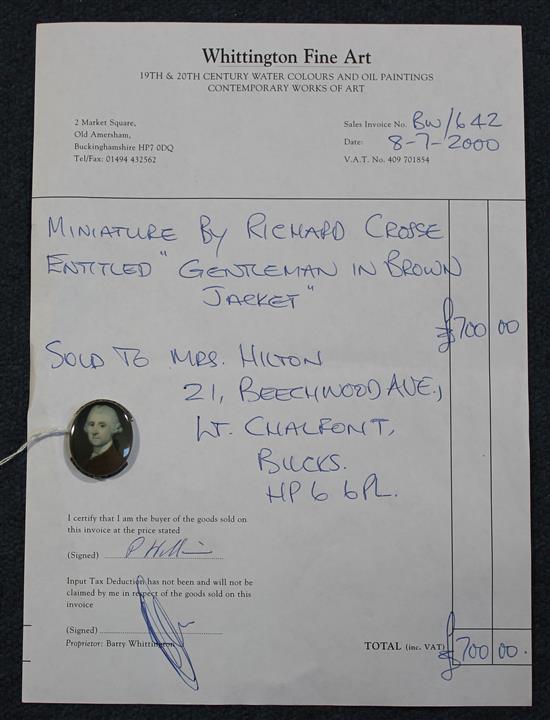 Whittington Fine Art
19TH & 20TH CENTURY WATER COLOURS AND OIL PAINTINGS
CONTEMPORARY WORKS OF ART
2 Market Square,
Old Amersham,
Buckinghamshire HP7 0DQ
Tel/Fax: 01494 432562
Sales Invoice No. BW/642
Date: 8-7-2000
V.A.T. No. 409 701854
MINIATURE BY RICHARD CROSSE
ENTITLED "GENTLEMAN IN BROWN
JACKET"
£700 00
SOLD TO MRS. HILTON
21, BEECHWOOD AVE.,
LT. CHALFONT,
BUCKS.
HP6 6PL.
I certify that I am the buyer of the goods sold on
this invoice at the price stated
(Signed)
Input Tax Deduction has not been and will not be
claimed by me in respect of the goods sold on this
invoice
(Signed)
Proprietor: Barry Whittington
TOTAL (inc. VAT) £700 00.